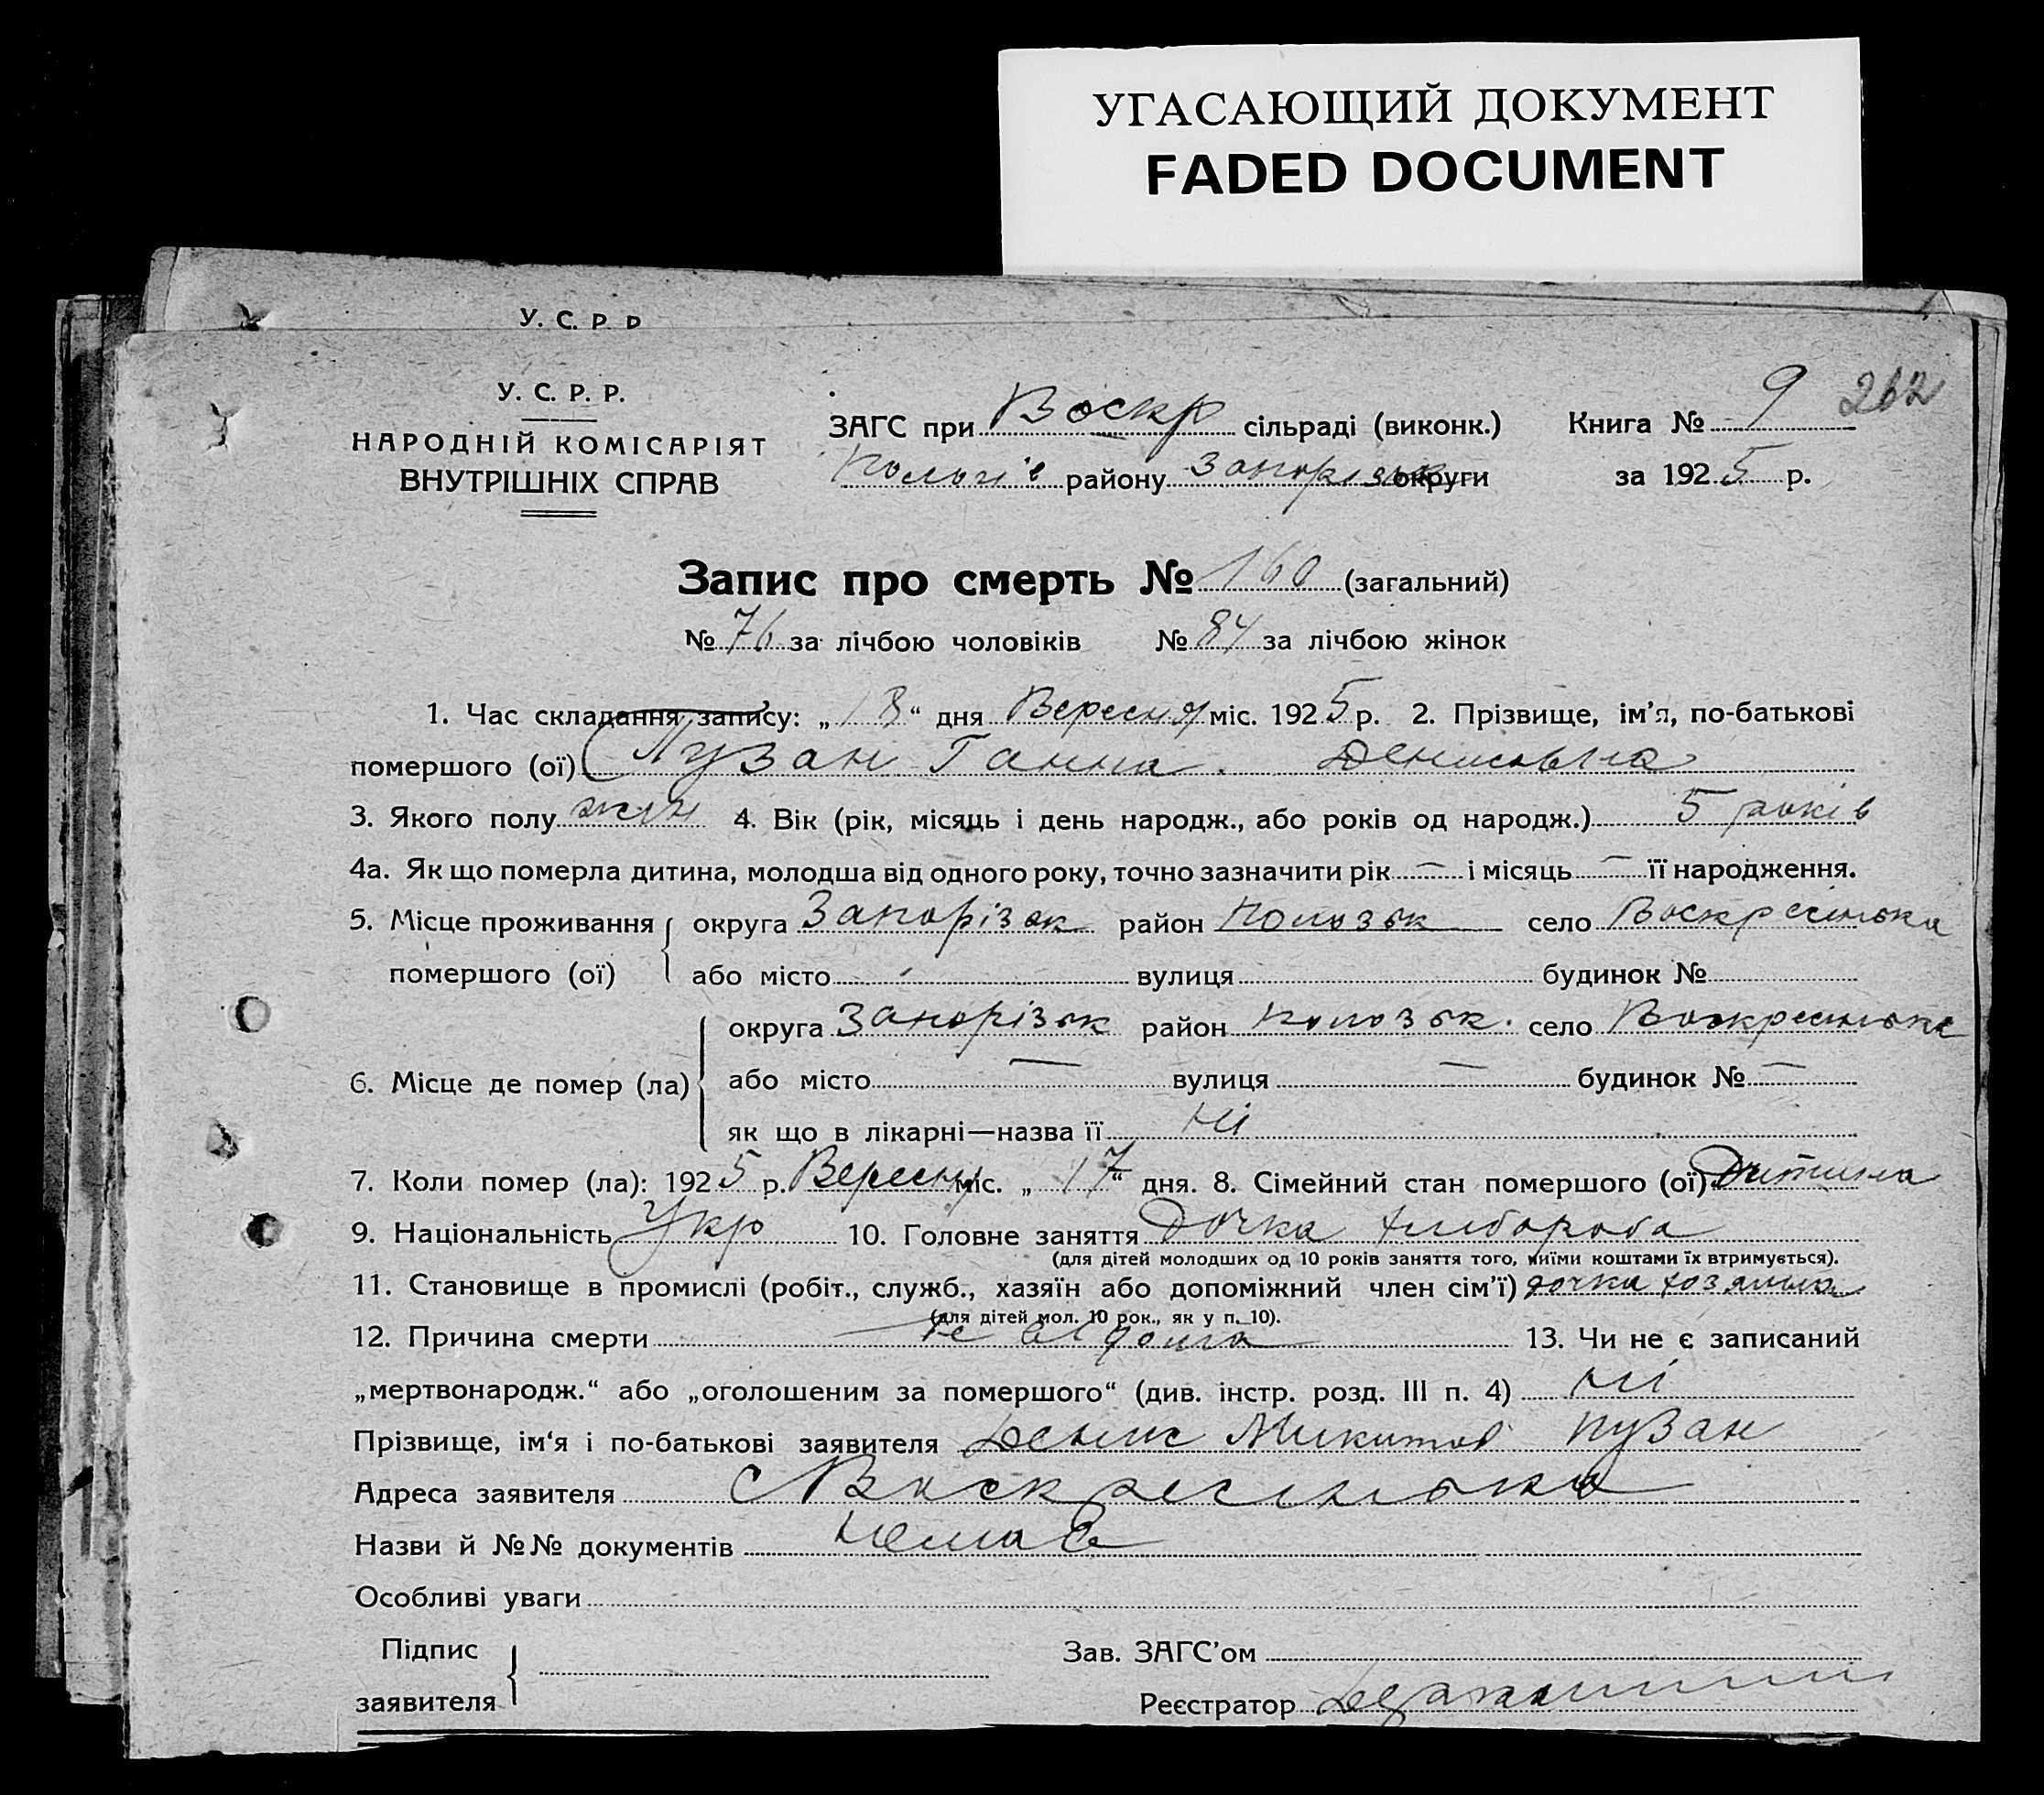 УГАСАЮЩИЙ ДОКУМЕНТ
FADED DOCUMENT
У. С. Р. Р.
У. С. Р. Р.
НАРОДНІЙ КОМІСАРІЯТ
ВНУТРІШНІХ СПРАВ
ЗАГС при Воскр сільраді (виконк.) Книга № 9 262
району Запорізьк округи за 1925 р.
Запис про смерть № 160 (загальний)
№ 76 за лічбою чоловіків № 84 за лічбою жінок
1. Час складання запису: „18“ дня Вересня міс. 1925 р. 2. Прізвище, ім’я, по-батькові
помершого (ої) Пузан Ганна Денисовна
3. Якого полу жін 4. Вік (рік, місяць і день народж., або років од народж.) 5 років
4а. Як що померла дитина, молодша від одного року, точно зазначити рік — і місяць — її народження.
5. Місце проживання округа Запорізьк район Пологзьк село Воскресенька
помершого (ої) або місто вулиця будинок №
округа Запорізьк район Пологзьк. село Воскресенька
6. Місце де помер (ла) або місто — вулиця — будинок № —
як що в лікарні—назва її ні
7. Коли помер (ла): 1925 р. Вересня міс. „17“ дня. 8. Сімейний стан помершого (ої) Дитина
9. Національність Укр 10. Головне заняття Дочка хлібороба
(для дітей молодших од 10 років заняття того, чиїми коштами їх втримується).
11. Становище в промислі (робіт., служб., хазяїн або допоміжний член сім’ї) дочка хозяина
(для дітей мол. 10 рок., як у п. 10).
12. Причина смерти не відома 13. Чи не є записаний
„мертвонародж.“ або „оголошеним за помершого“ (див. інстр. розд. III п. 4) ні
Прізвище, ім‘я і по-батькові заявителя Денис Микитов Пузан
Адреса заявителя с Воскресенька
Назви й №№ документів немає
Особливі уваги
Підпис Зав. ЗАГС’ом
заявителя Реєстратор